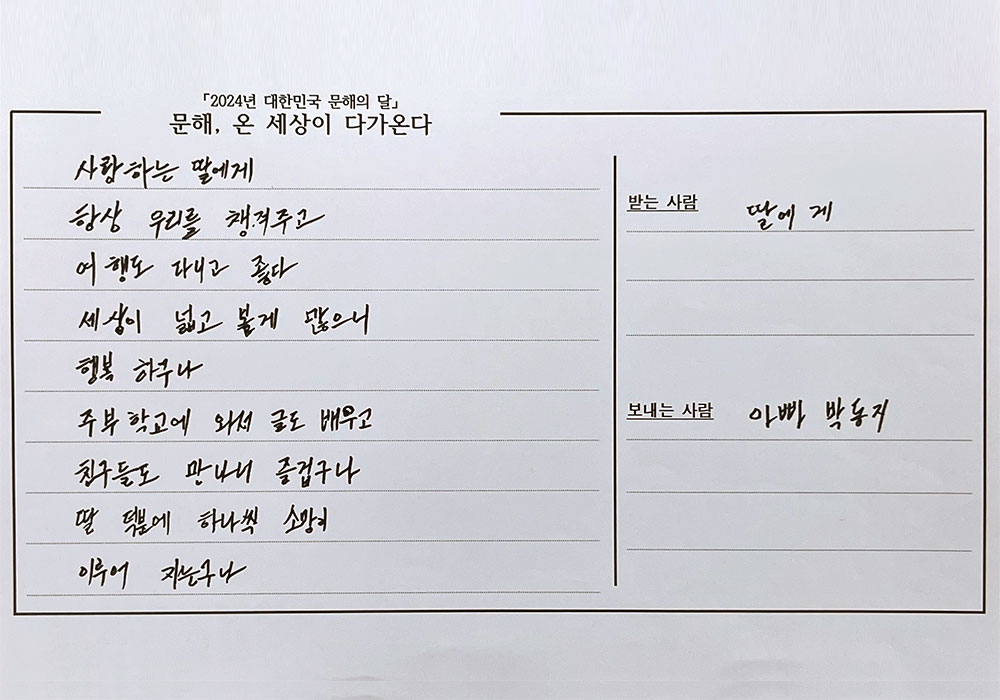 「2024년 대한민국 문해의 달」
문해, 온 세상이 다가온다
사랑하는 딸에게
항상 우리를 챙겨주고
여행도 다니고 좋다
세상이 넓고 볼게 많으니
행복 하구나
주부 학교에 와서 글도 배우고
친구들도 만나니 즐겁구나
딸 덕분에 하나씩 소망이
이루어 지는구나
받는 사람 딸에 게
보내는 사람 아빠 박동지